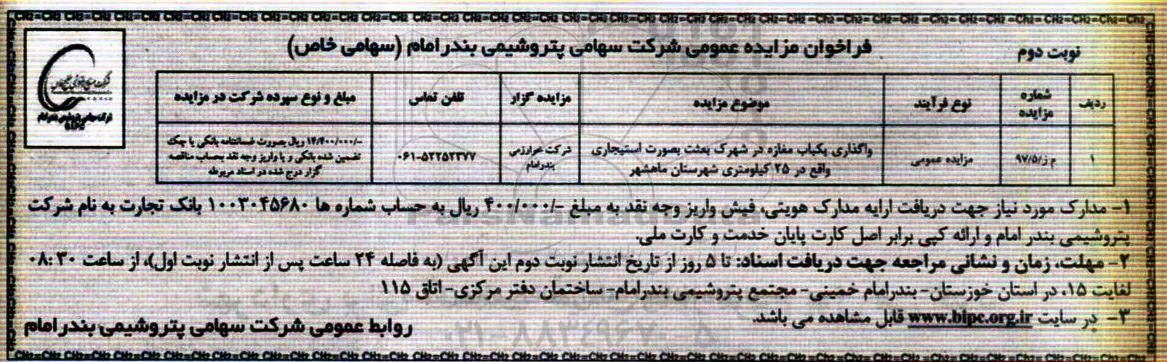 نوبت دوم
فراخوان مزایده عمومی شرکت سهامی پتروشیمی بندر امام (سهامی خاص)
ردیف
شماره مزایده
نوع فرآیند
موضوع مزایده
مزایده گزار
تلفن تماس
مبلغ و نوع سپرده شرکت در مزایده
۱
م ز/۹۷/۵
مزایده عمومی
واگذاری یکباب مغازه در شهرک بعثت بصورت استیجاری
واقع در ۲۵ کیلومتری شهرستان ماهشهر
شرکت خوارزمی
بندرامام
۰۶۱-۵۲۲۵۲۳۷۷
-/۱۴/۴۰۰/۰۰۰ ریال بصورت ضمانتنامه بانکی یا چک
تضمین شده بانکی و یا واریز وجه نقد بحساب مناقصه
گزار درج شده در اسناد مربوطه
۱- مدارک مورد نیاز جهت دریافت ارایه مدارک هویتی، فیش واریز وجه نقد به مبلغ -/۴۰۰/۰۰۰ ریال به حساب شماره ها ۱۰۰۳۰۴۵۶۸۰ بانک تجارت به نام شرکت
پتروشیمی بندر امام و ارائه کپی برابر اصل کارت پایان خدمت و کارت ملی.
۲- مهلت، زمان و نشانی مراجعه جهت دریافت اسناد: تا ۵ روز از تاریخ انتشار نوبت دوم این آگهی (به فاصله ۲۴ ساعت پس از انتشار نوبت اول)، از ساعت ۰۸:۳۰
لغایت ۱۵، در استان خوزستان- بندرامام خمینی- مجتمع پتروشیمی بندرامام- ساختمان دفتر مرکزی- اتاق ۱۱۵
۳- در سایت www.bipc.org.ir قابل مشاهده می باشد.
روابط عمومی شرکت سهامی پتروشیمی بندر امام
۰۲۱-۸۸۳۴۹۶۷۰-۵